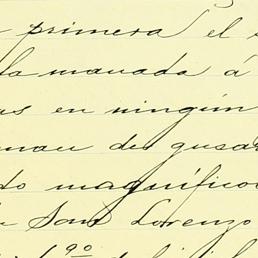 primera el
la manada á
as en ningún
man du gusa
do magníficos
Sant Lorenzo
1º 90